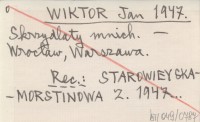 WIKTOR Jan 1947.
Skrzydlaty mnich. —
Wrocław, Warszawa.
Rec.: STAROWIEYSKA-
-MORSTINOWA Z. 1947...